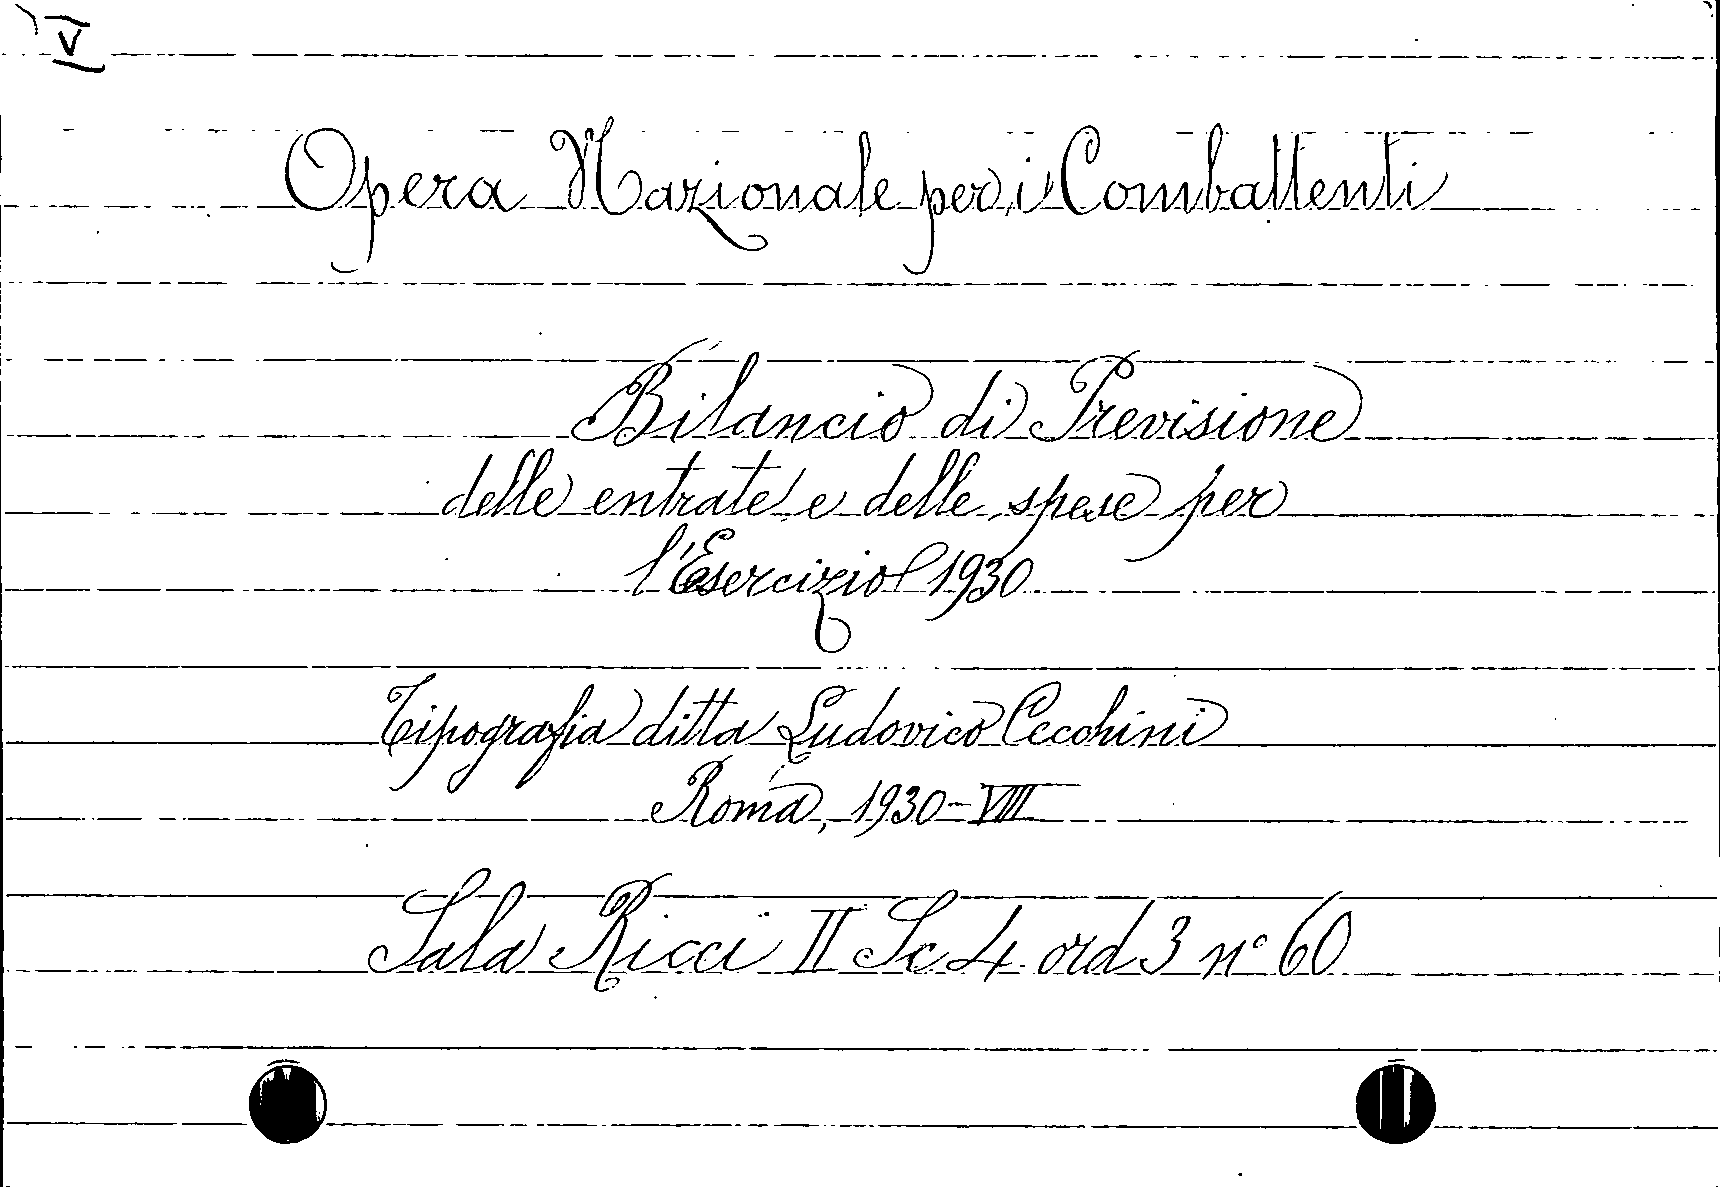 V
Opera Nazionale per i Combattenti
Bilancio di Previsione
delle entrate e delle spese per
l'Esercizio 1930
Tipografia ditta Ludovico Cecchini
Roma, 1930-VIII
Sala Ricci II Sc 4 ord 3 n° 60